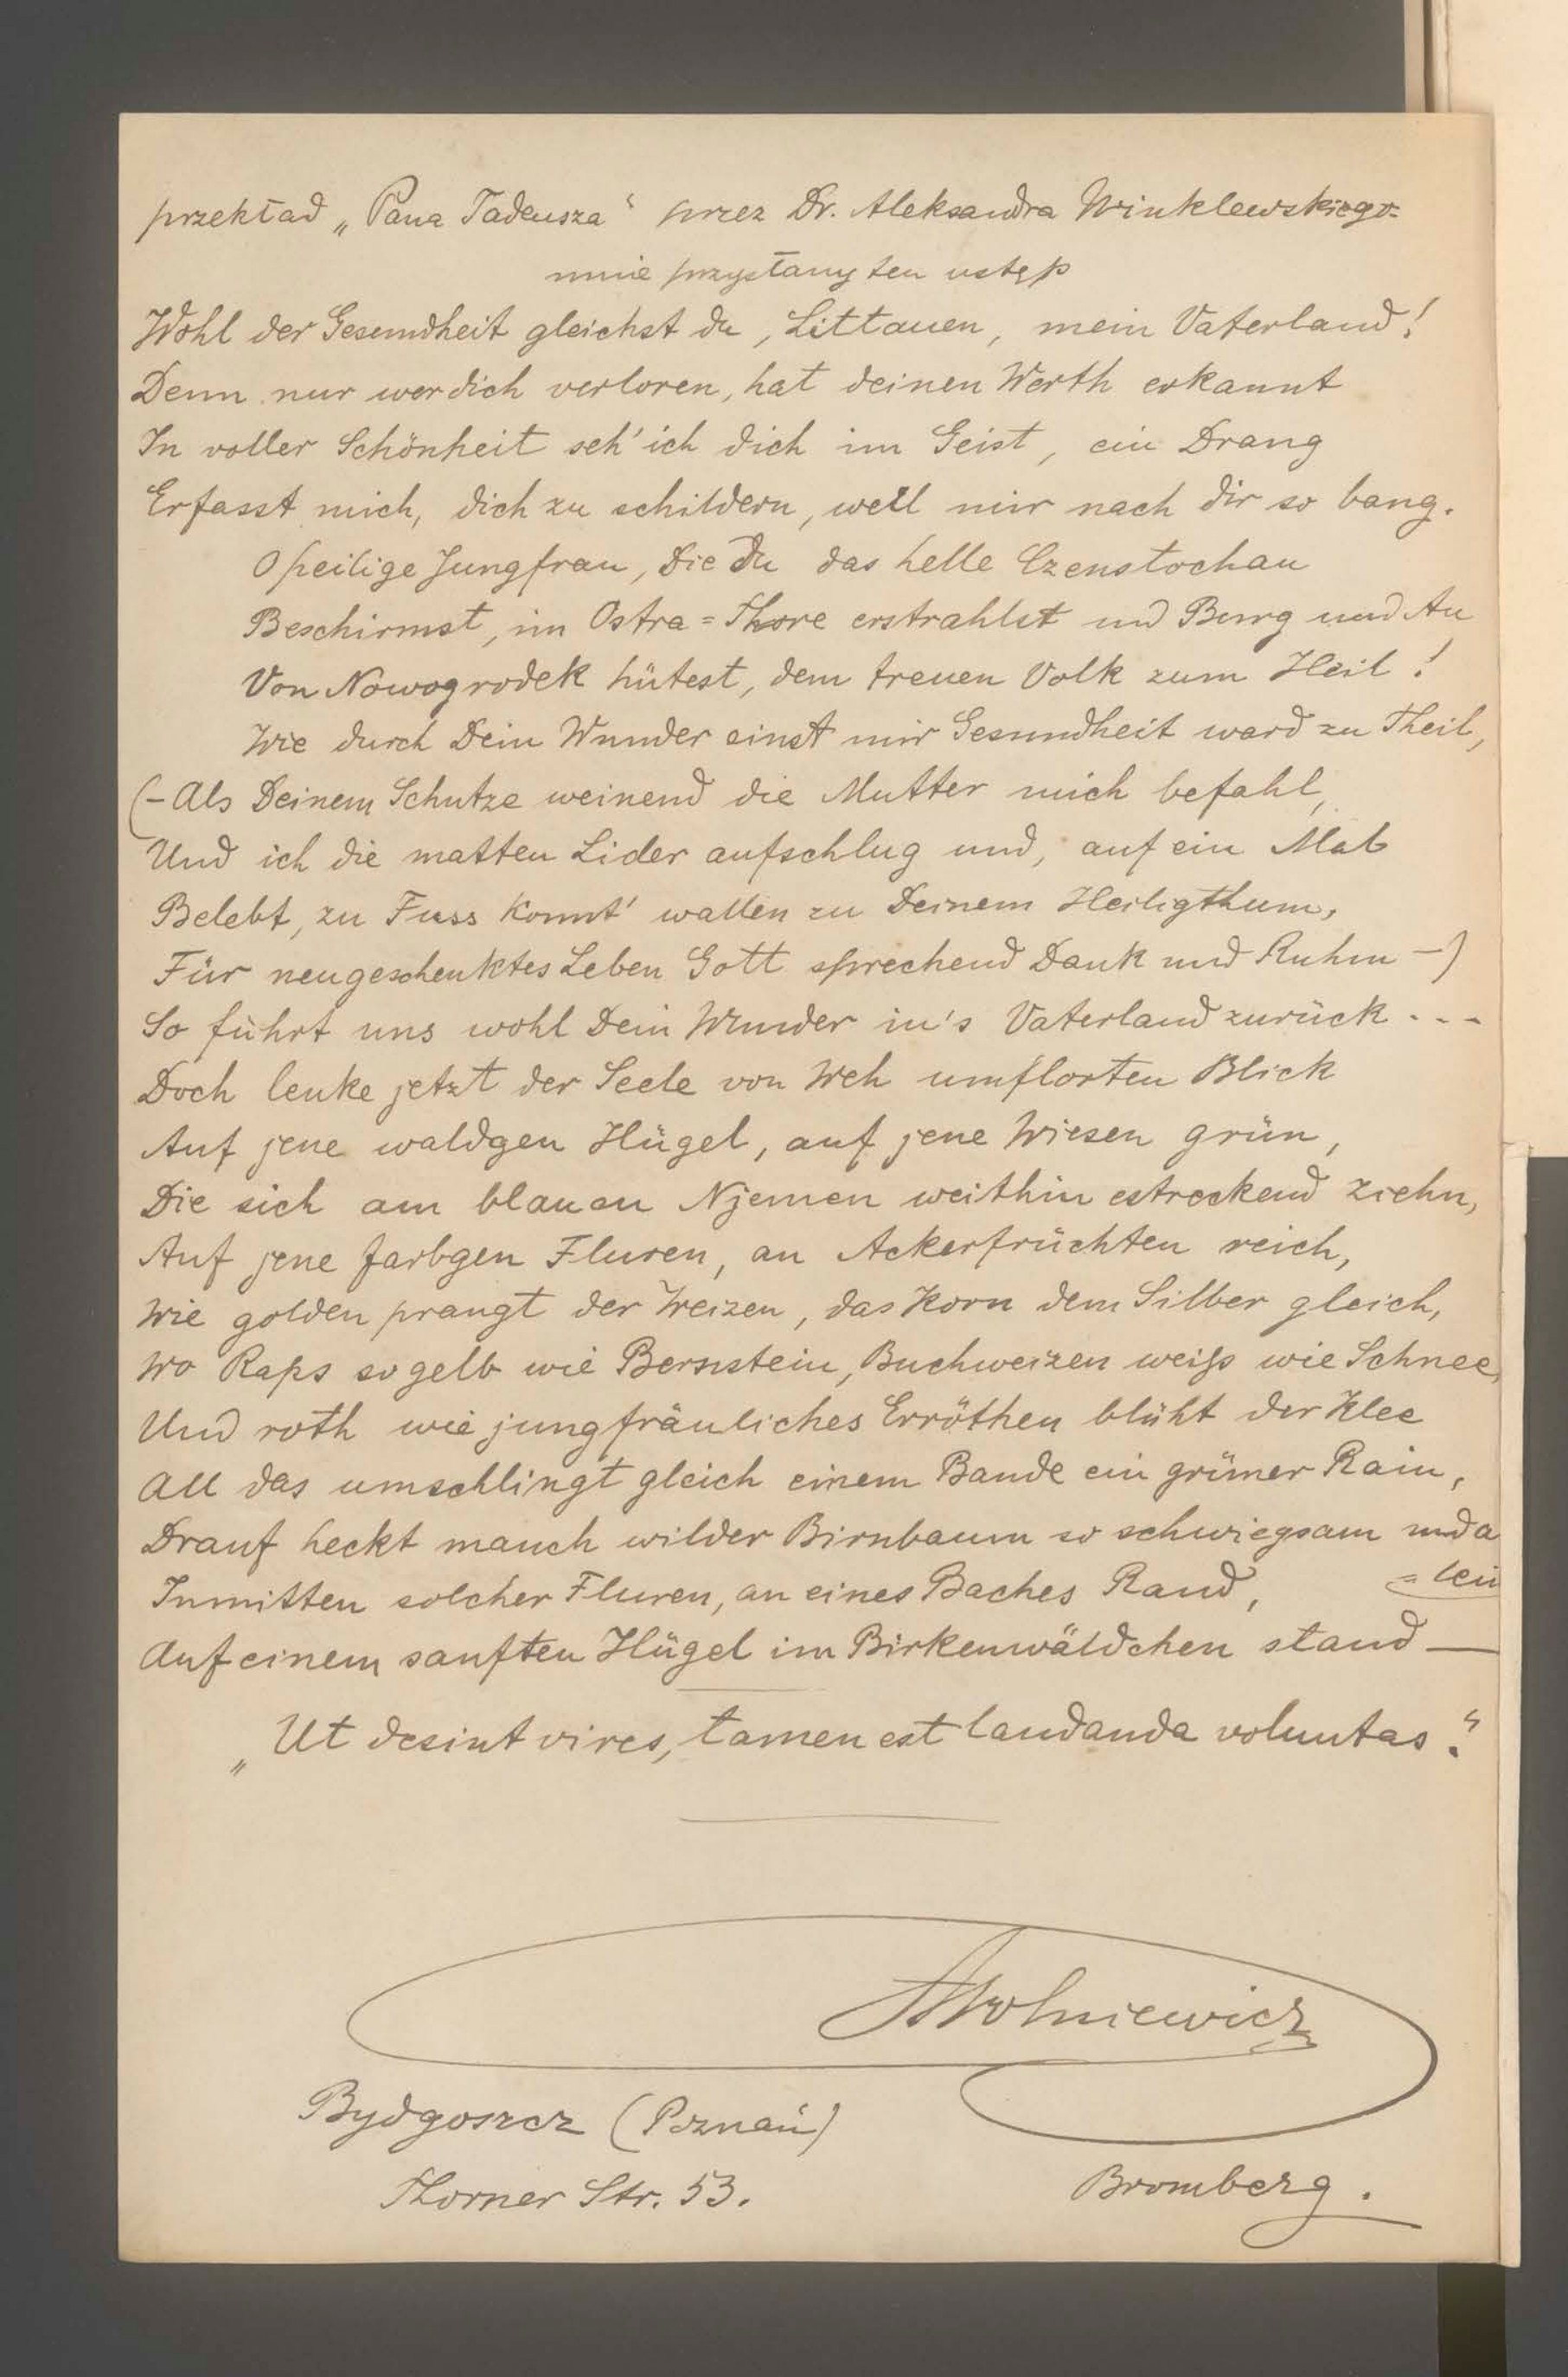 przekład „Pana Tadeusza“ przez Dr. Aleksandra Winklewskiego=
mnie przysłany ten ustęp
Wohl der Gesundheit gleichst du, Littauen, mein Vaterland!
Denn nur wer dich verloren, hat deinen Werth erkannt
In voller Schönheit seh' ich dich im Geist, ein Drang
Erfasst mich, dich zu schildern, weil mir nach dir so bang.
O heilige Jungfrau, Die Du das helle Czenstochau
Beschirmst, im Ostra=Thore erstrahlst und Burg und Au
Von Nowogrodek hütest, dem treuen Volk zum Heil!
Wie durch Dein Wunder einst mir Gesundheit ward zu Theil,
(– Als Deinem Schutze weinend die Mutter mich befahl,
Und ich die matten Lider aufschlug und, auf ein Mal
Belebt, zu Fuss konnt' wallen zu Deinem Heiligthum,
Für neugeschenktes Leben Gott sprechend Dank und Ruhm –)
So führt uns wohl Dein Wunder in's Vaterland zurück . . .
Doch lenke jetzt der Seele von Weh umflorten Blick
Auf jene waldgen Hügel, auf jene Wiesen grün,
Die sich am blauen Njemen weithin estreckend ziehn,
Auf jene farbgen Fluren, an Ackerfrüchten reich,
Wie golden prangt der Weizen, das Korn dem Silber gleich,
Wo Raps so gelb wie Bernstein, Buchweizen weiß wie Schnee,
Und roth wie jungfräuliches Erröthen blüht der Klee
All das umschlingt gleich einem Bande ein grüner Rain,
Drauf heckt manch wilder Birnbaum so schwiegsam und a
=lein
Inmitten solcher Fluren, an eines Baches Rand,
Auf einem sanften Hügel im Birkenwäldchen stand —
„Ut desint vires, tamen est laudanda voluntas.“
AWolniewicz
Bydgoszcz (Poznań)
Thorner Str. 53.
Bromberg.